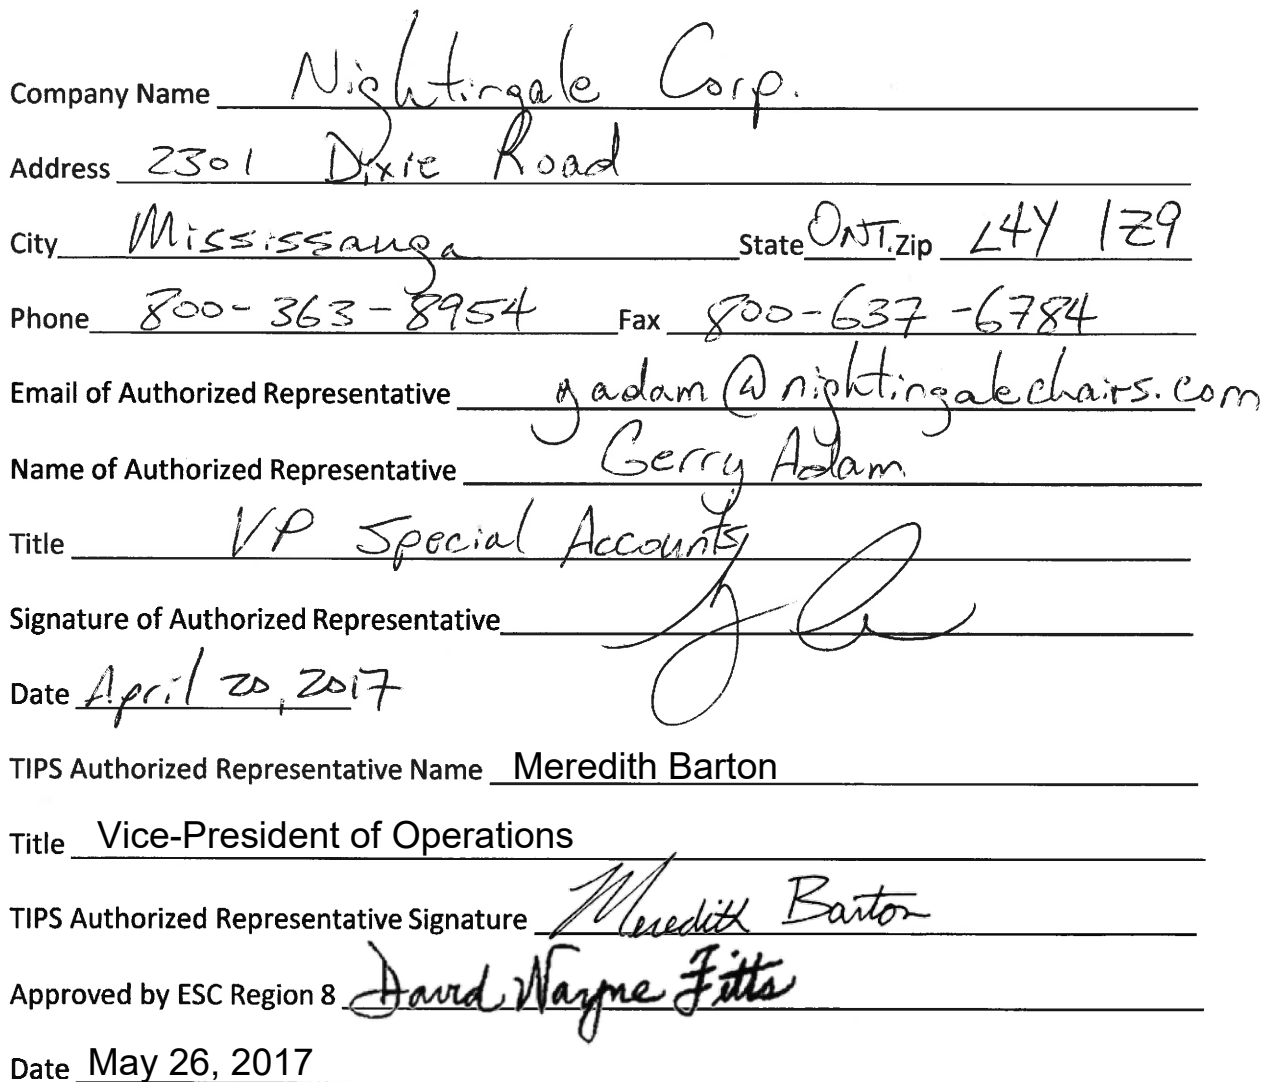 Company Name Nightingale Corp.
Address 2301 Dixie Road
City Mississauga State ONT. Zip L4Y 1Z9
Phone 800-363-8954 Fax 800-637-6784
Email of Authorized Representative gadam@nightingalechairs.com
Name of Authorized Representative Gerry Adam
Title VP Special Accounts
Signature of Authorized Representative
Date April 20, 2017
TIPS Authorized Representative Name Meredith Barton
Title Vice-President of Operations
TIPS Authorized Representative Signature Meredith Barton
Approved by ESC Region 8 David Wayne Fitts
Date May 26, 2017